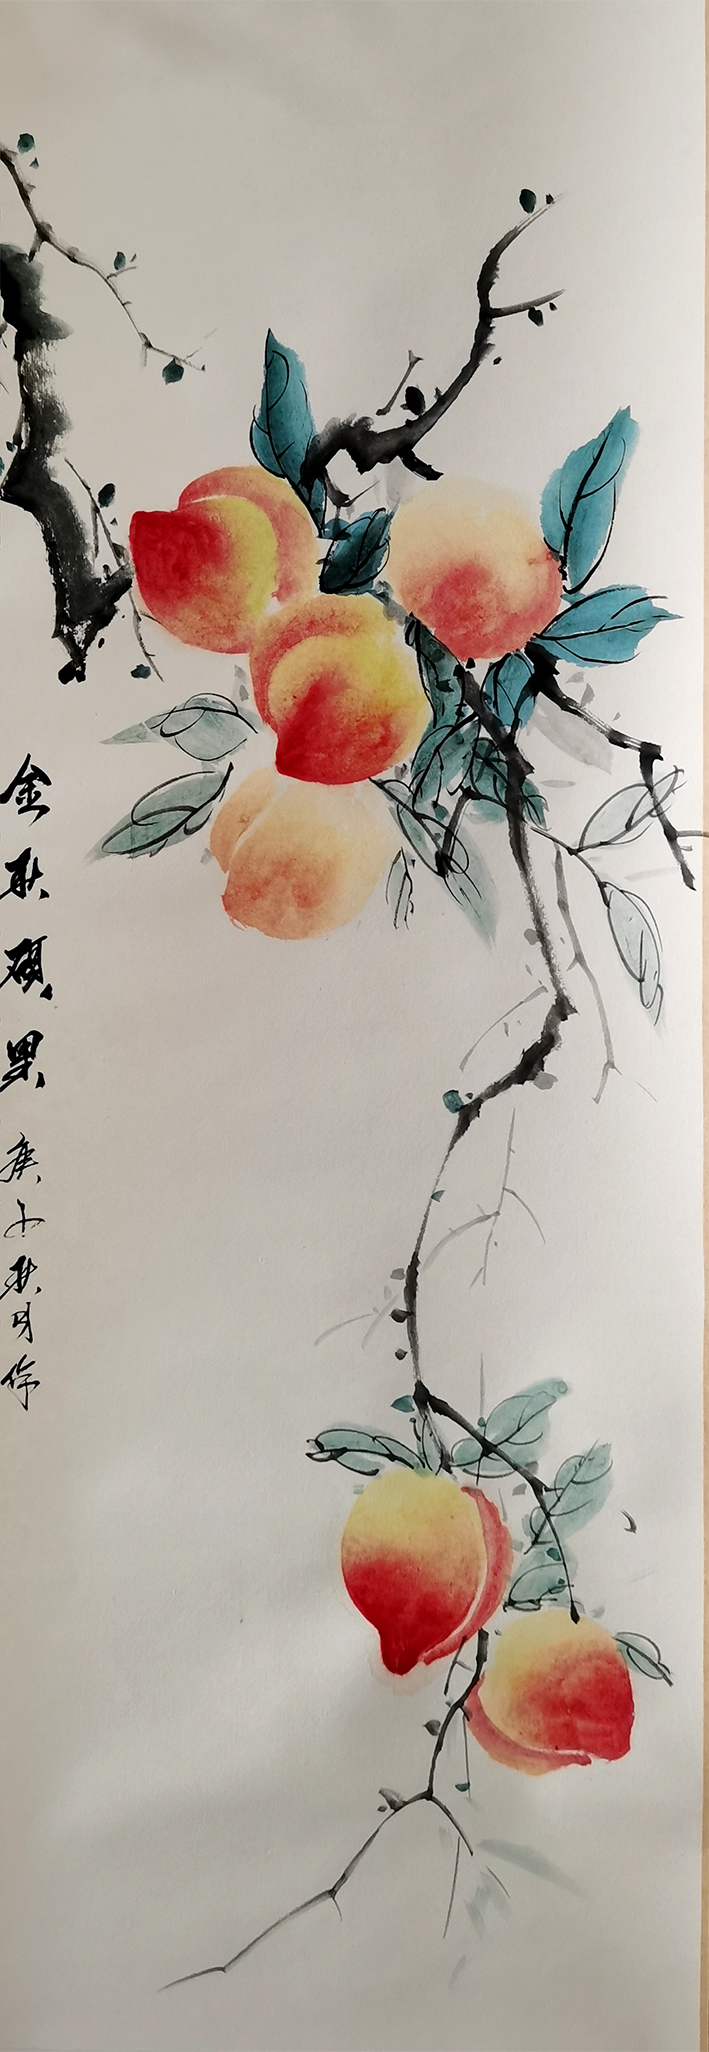 金秋硕果 庚子秋月作